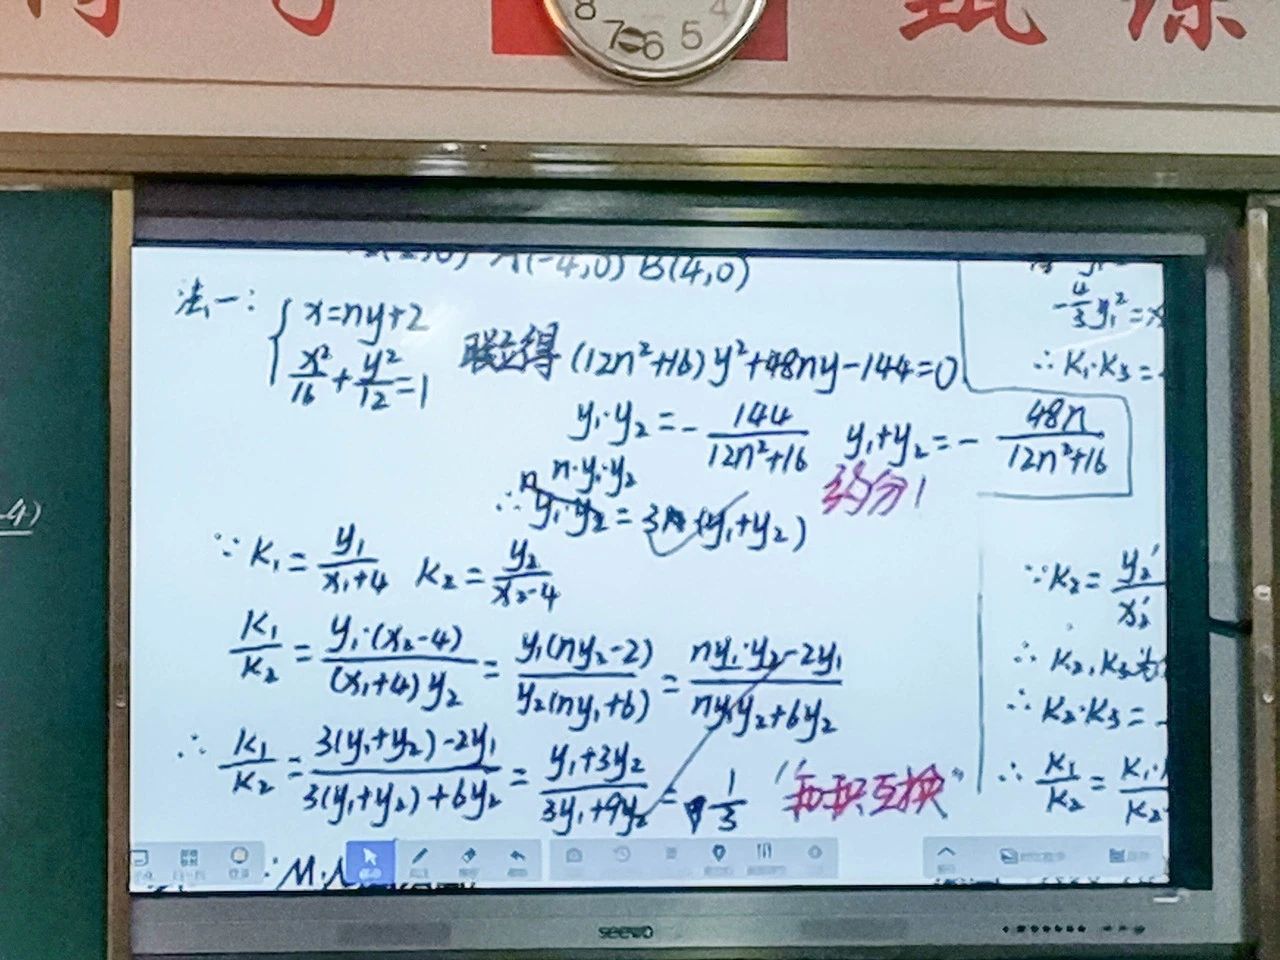 甄 练
8 7 6 5 4
A(-4,0) B(4,0)
法一: { x=ny+2
x²/16 + y²/12 = 1
联立得 (12n²+16)y²+48ny-144=0
y₁·y₂ = - 144/(12n²+16) y₁+y₂ = - 48n/(12n²+16)
n·y₁·y₂
∴ y₁·y₂ = 3n (y₁+y₂) 约分!
∵ K₁ = y₁/(x₁+4) K₂ = y₂/(x₂-4)
K₁/K₂ = y₁·(x₂-4)/(x₁+4)y₂ = y₁(ny₂-2)/y₂(ny₁+6) = (ny₁·y₂-2y₁)/(ny₁y₂+6y₂)
∴ K₁/K₂ = (3(y₁+y₂)-2y₁)/(3(y₁+y₂)+6y₂) = (y₁+3y₂)/(3y₁+9y₂) = 1/3 "和积互换"
-4/3 y₁² =
∴ K₁·K₃ =
∵ K₂ = y₂'/x₂'
∴ K₂,K₃为
∴ K₂·K₃ = -
∴ K₁/K₂ = K₁·/K₂
-4)
∵M·
seewo